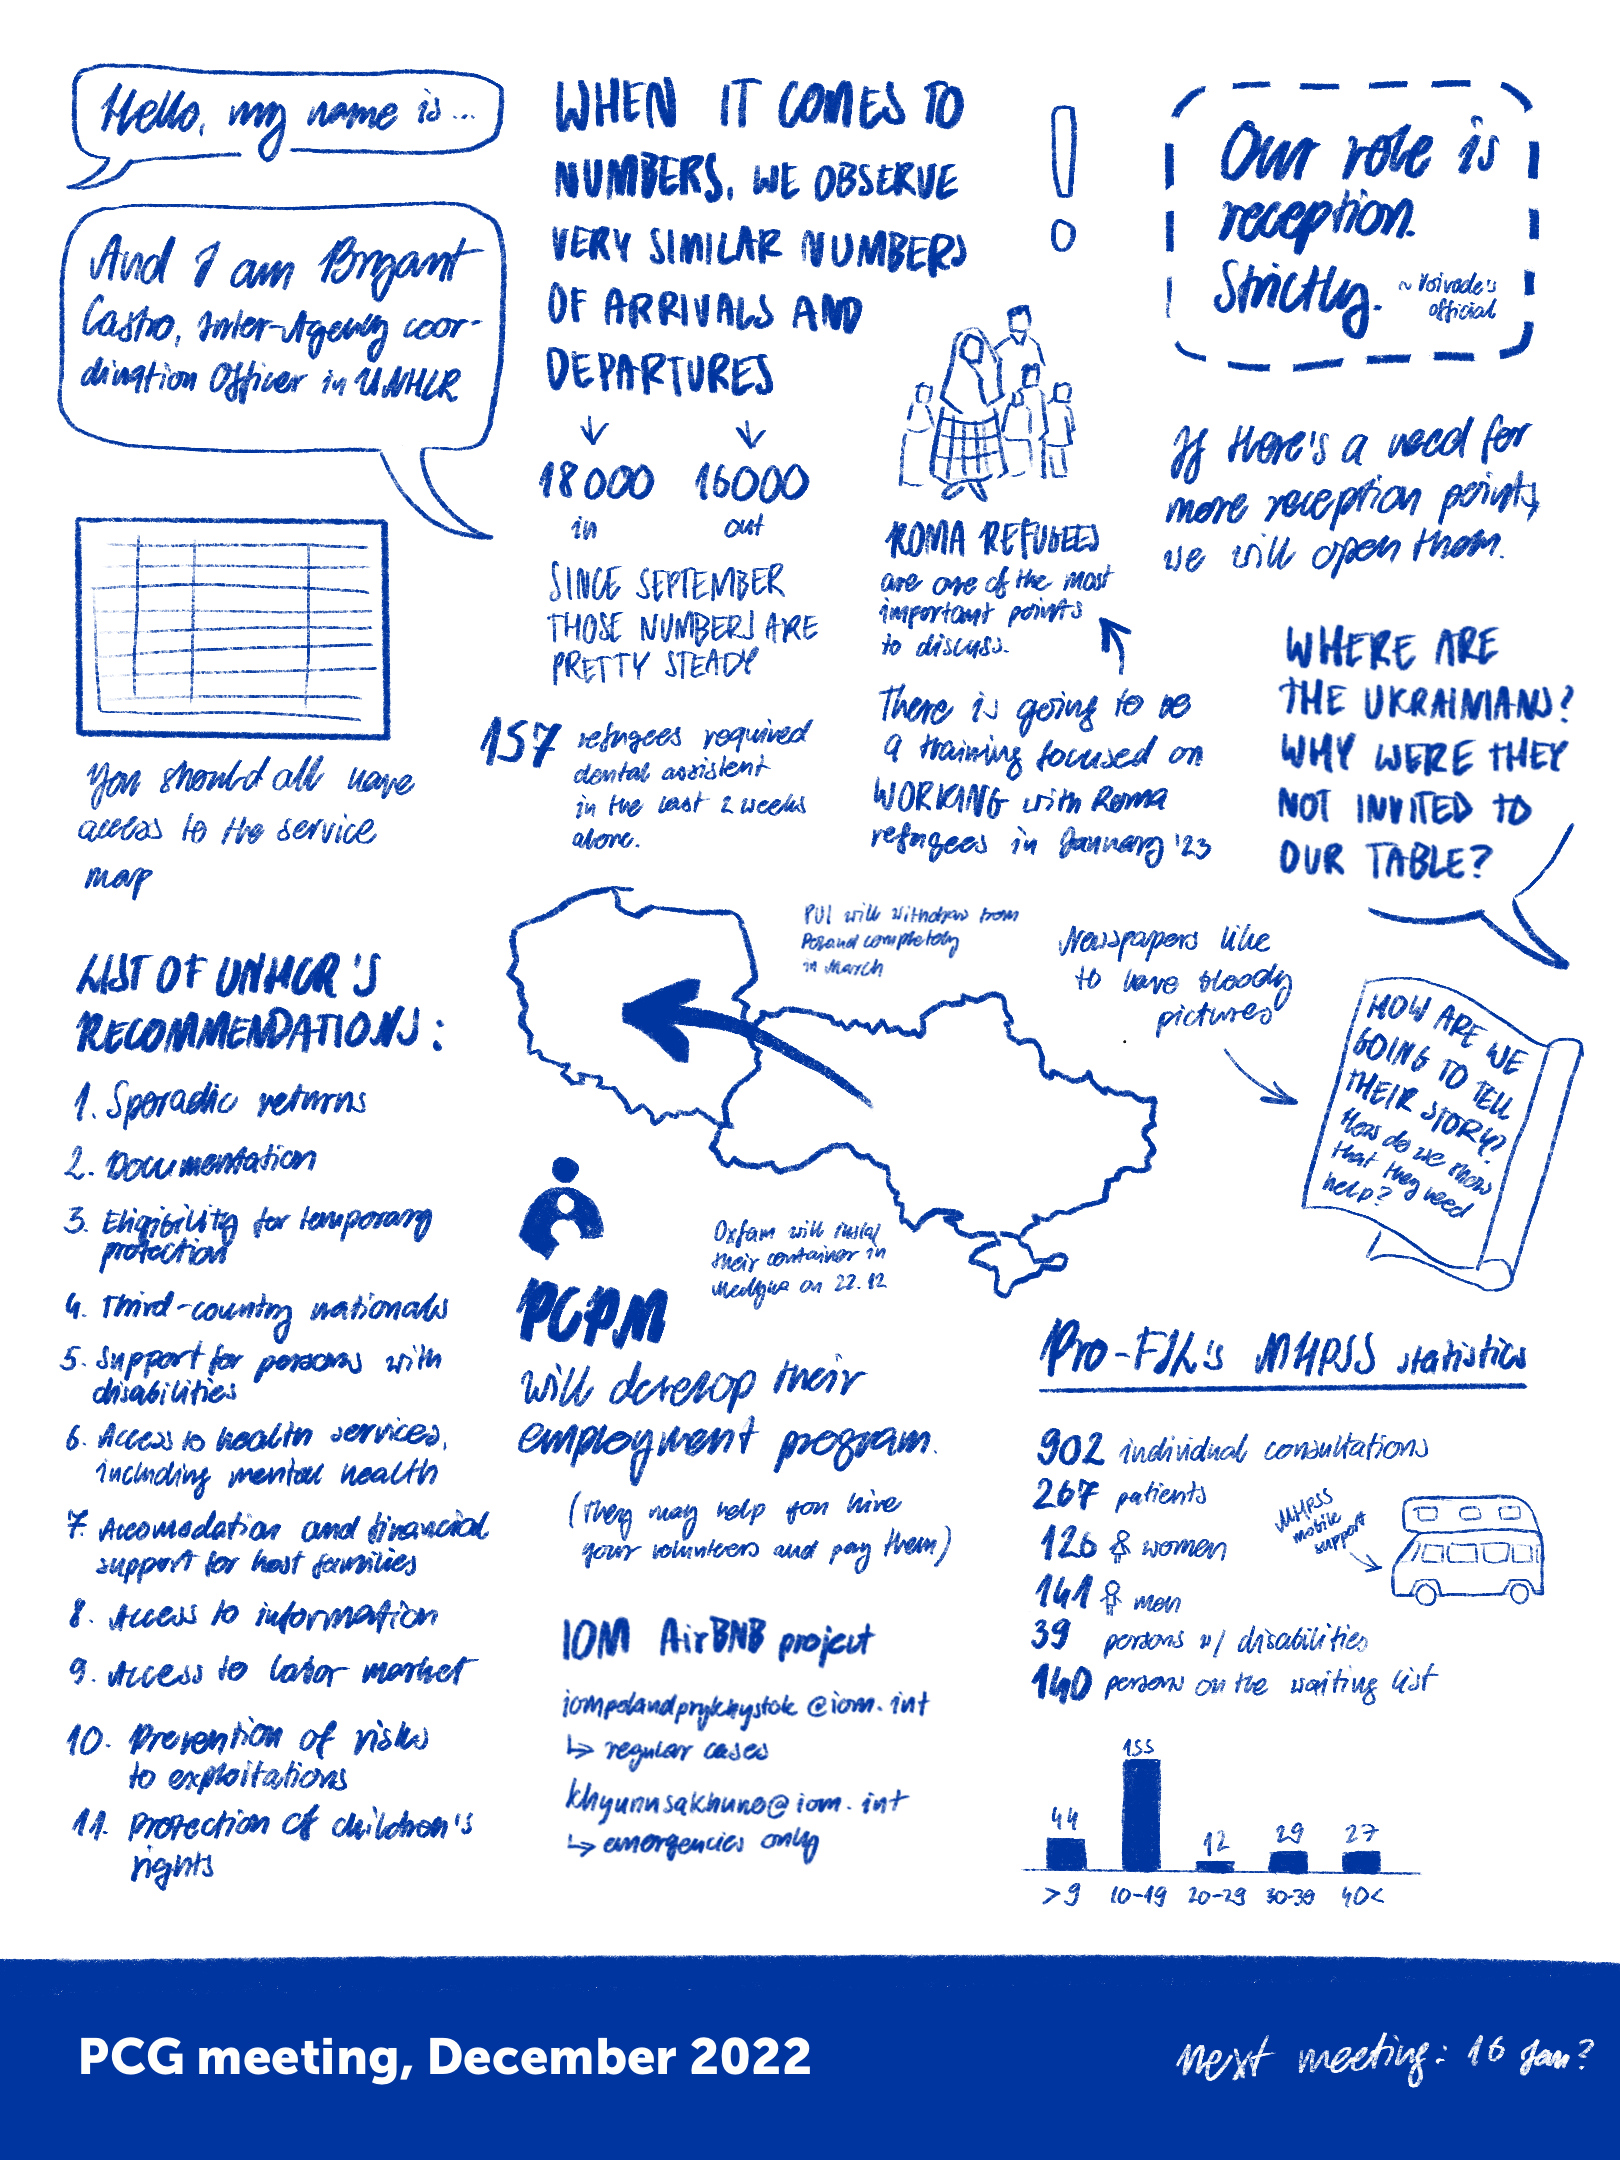 Hello, my name is...
And I am Bryant
Castro, Inter-Agency coor-
dination Officer in UNHCR
You should all have
access to the service
map
LIST OF UNHCR'S
RECOMMENDATIONS:
1. Sporadic returns
2. Documentation
3. Eligibility for temporary
protection
4. Third-country nationals
5. Support for persons with
disabilities
6. Access to health services,
including mental health
7. Accomodation and financial
support for host families
8. Access to information
9. Access to labor market
10. Prevention of risks
to exploitations
11. Protection of children's
rights
WHEN IT COMES TO
NUMBERS, WE OBSERVE
VERY SIMILAR NUMBERS
OF ARRIVALS AND
DEPARTURES
18000 16000
in out
SINCE SEPTEMBER
THOSE NUMBERS ARE
PRETTY STEADY
157 refugees required
dental assistent
in the last 2 weeks
alone.
!
ROMA REFUGEES
are one of the most
important points
to discuss.
There is going to be
a training focused on
WORKING with Roma
refugees in January '23
PUI will withdraw from
Poland completely
in March
Oxfam will instal
their container in
Medyka on 22.12
PCPM
will develop their
employment program.
(They may help you hire
your volunteers and pay them)
IOM AirBNB project
↳ regular cases
↳ emergencies only
Our role is
reception.
Strictly. ~ Voivode's
official
If there's a need for
more reception points,
we will open them.
WHERE ARE
THE UKRAINIANS?
WHY WERE THEY
NOT INVITED TO
OUR TABLE?
Newspapers like
to have bloody
pictures
HOW ARE WE
GOING TO TELL
THEIR STORY?
How do we know
that they need
help?
Pro-FIL's MHPSS statistics
902 individual consultations
267 patients
126 women
141 men
39 persons w/ disabilities
140 persons on the waiting list
MHPSS
mobile
support
44 155 12 29 27
>9 10-19 20-29 30-39 40<
PCG meeting, December 2022
next meeting: 16 Jan?